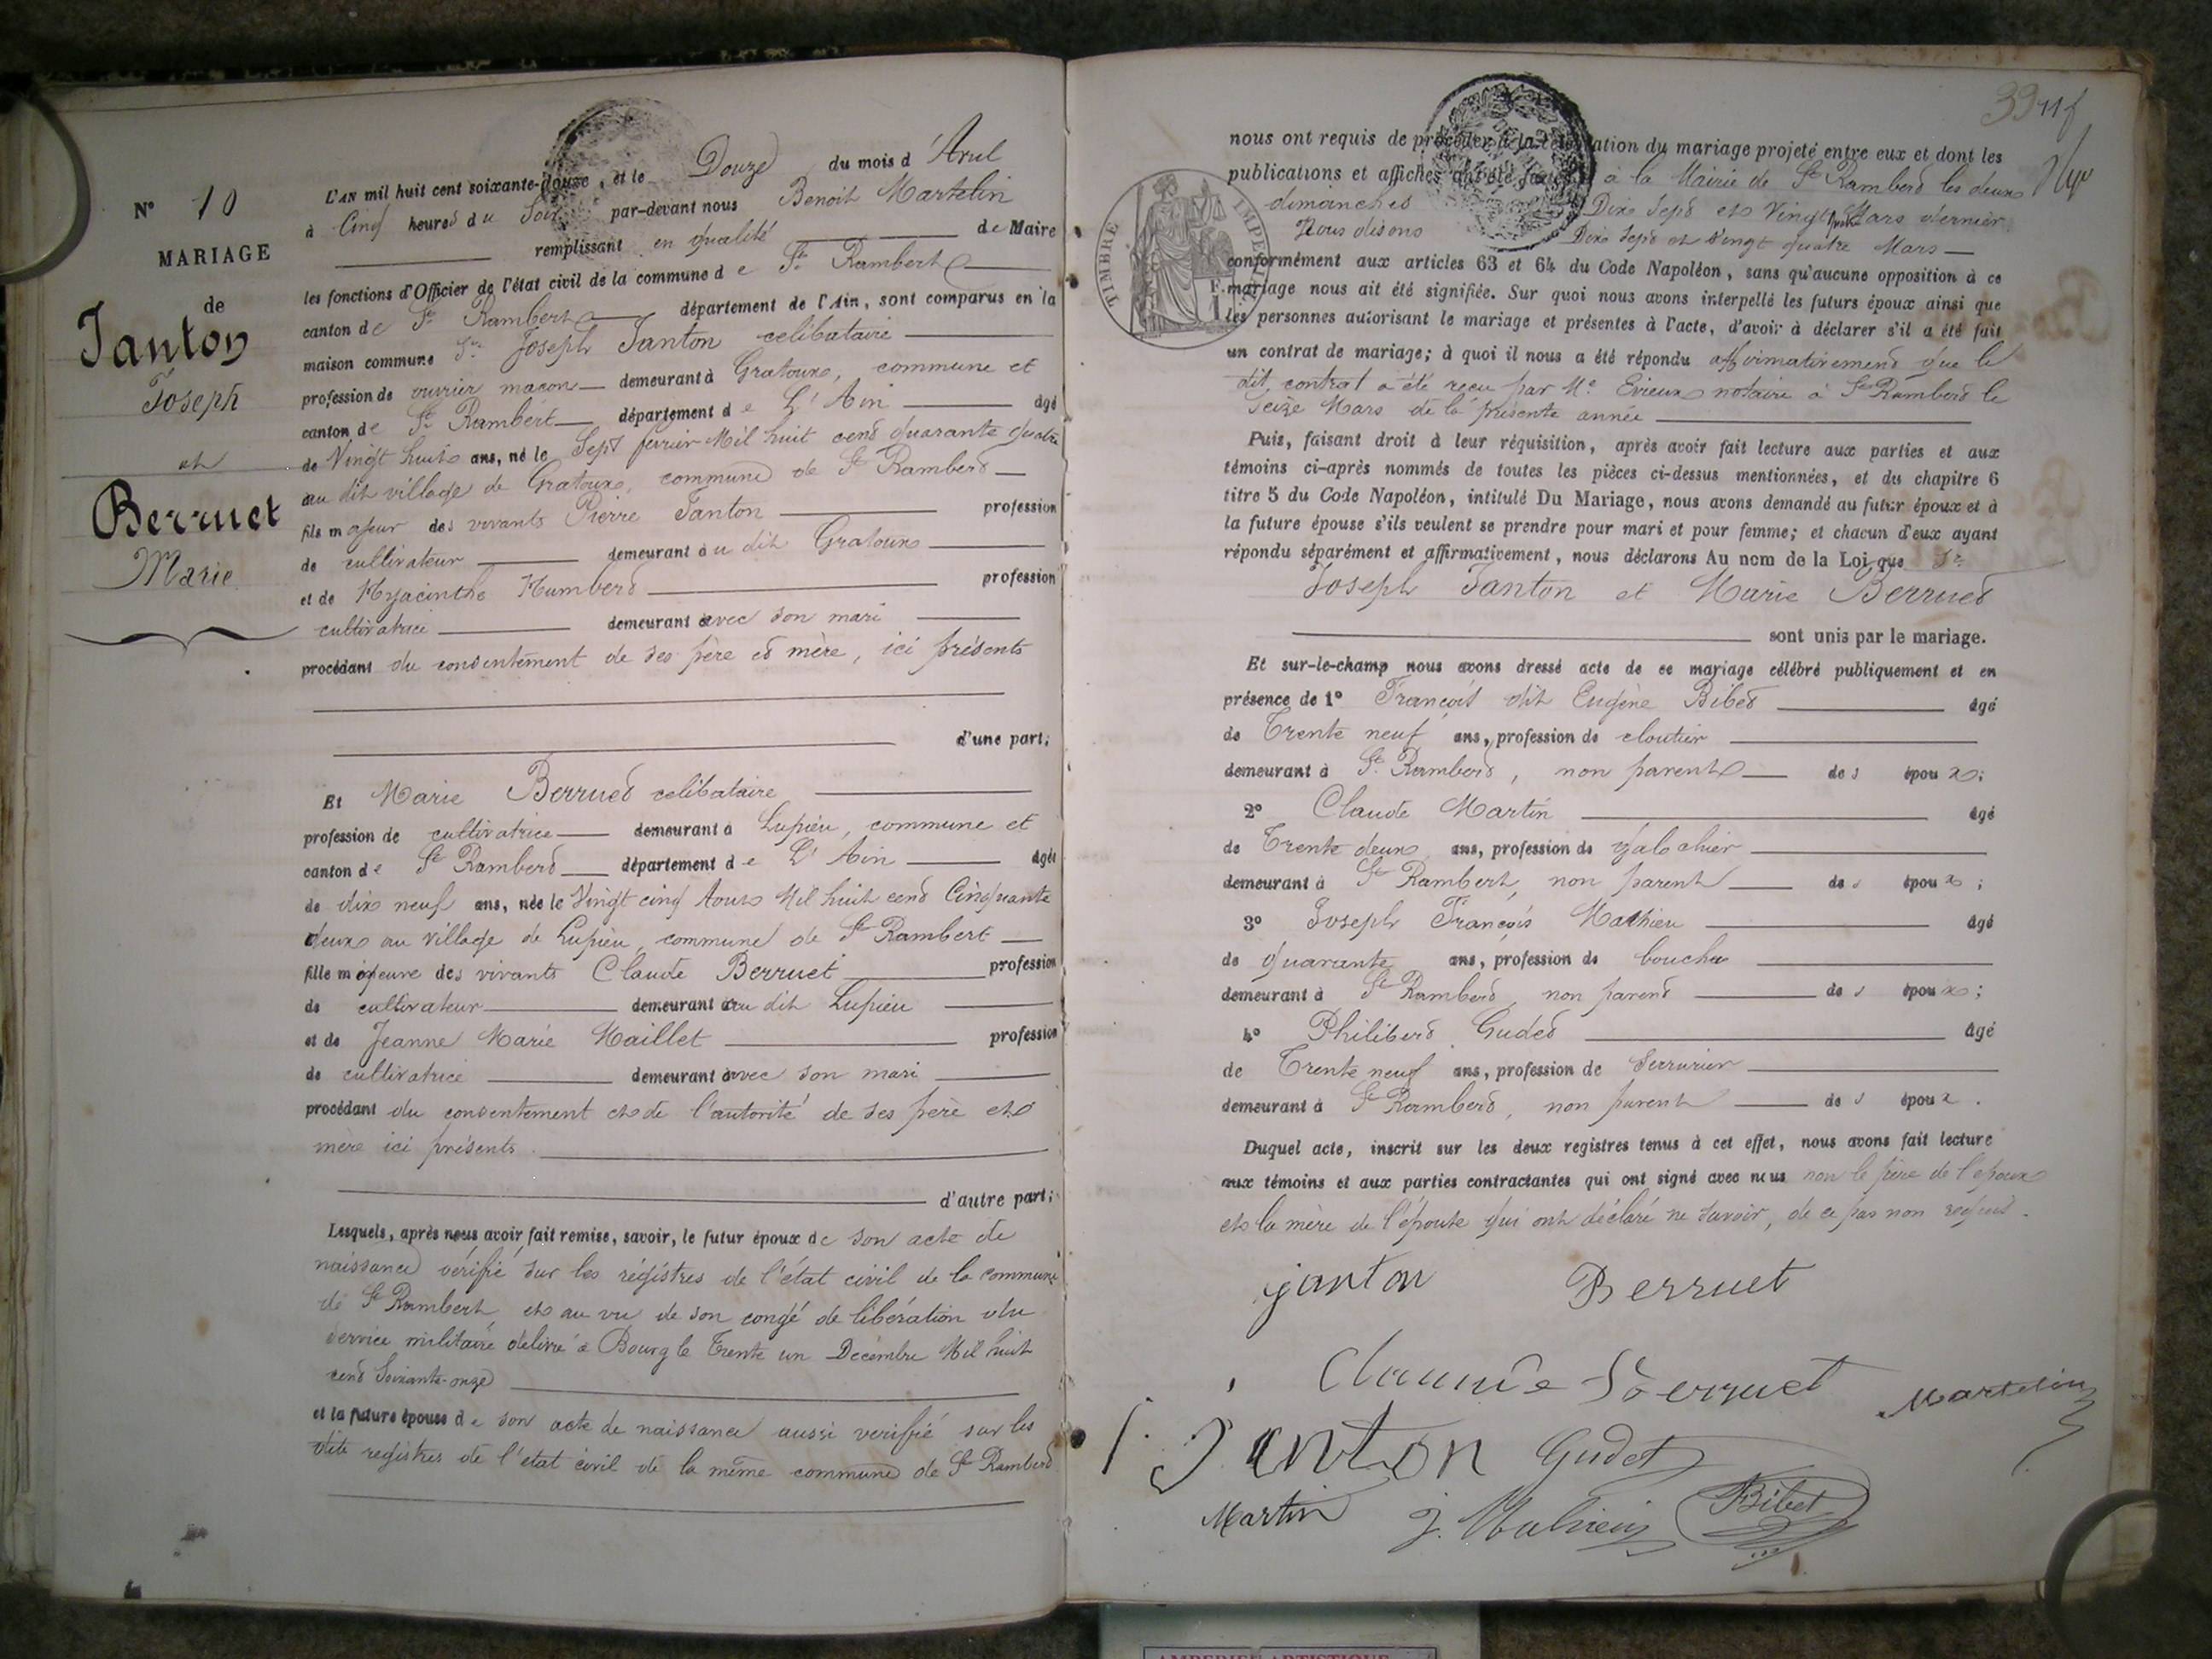 N° 10
MARIAGE
de
Janton
Joseph
et
Berruet
Marie
L'AN mil huit cent soixante-douze, et le Douze du mois d'Avril
à Cinq heures du Soir par-devant nous Benoit Martelin
remplissant en qualité de Maire
les fonctions d'Officier de l'état civil de la commune de St Rambert
canton de St Rambert département de l'Ain, sont comparus en la
maison commune Sr Joseph Janton celibataire
profession de ouvrier maçon demeurant à Gratoux, commune et
canton de St Rambert département de L'Ain âgé
de Vingt huit ans, né le Sept fevrier Mil huit cent quarante quatre
au dit village de Gratoux, commune de St Rambert
fils majeur des vivants Pierre Janton profession
de cultivateur demeurant au dit Gratoux
et de Hyacinthe Humbert profession
cultivatrice demeurant avec son mari
procédant du consentement de ses père et mère, ici présents
d'une part;
Et Marie Berruet celibataire
profession de cultivatrice demeurant à Lupieu, commune et
canton de St Rambert département de L'Ain âgée
de dix neuf ans, née le Vingt cinq Aout Mil huit cent Cinquante
deux au village de Lupieu, commune de St Rambert
fille majeure des vivants Claude Berruet profession
de cultivateur demeurant au dit Lupieu
et de Jeanne Marie Maillet profession
de cultivatrice demeurant avec son mari
procédant du consentement et de l'autorité de ses père et
mère ici présents.
d'autre part;
Lesquels, après nous avoir fait remise, savoir, le futur époux de son acte de
naissance vérifié sur les régistres de l'état civil de la commune
de St Rambert, et au vu de son congé de libération du
service militaire délivré à Bourg le Trente un Décembre Mil huit
cent Soixante-onze
et la future épouse de son acte de naissance aussi verifié sur les
dits registres de l'état civil de la même commune de St Rambert
33
nous ont requis de procéder à la célébration du mariage projeté entre eux et dont les
publications et affiches ont été faites à la Mairie de St Rambert les deux
dimanches Dix Sept et Vingt Mars dernier
Nous disons Dix Sept et Vingt quatre Mars
TIMBRE IMPE
F.
1
conformément aux articles 63 et 64 du Code Napoléon, sans qu'aucune opposition à ce
mariage nous ait été signifiée. Sur quoi nous avons interpellé les futurs époux ainsi que
les personnes autorisant le mariage et présentes à l'acte, d'avoir à déclarer s'il a été fait
un contrat de mariage; à quoi il nous a été répondu affirmativement que le
dit contrat a été reçu par Me Evieux notaire à St Rambert le
seize Mars de la présente année
Puis, faisant droit à leur réquisition, après avoir fait lecture aux parties et aux
témoins ci-après nommés de toutes les pièces ci-dessus mentionnées, et du chapitre 6
titre 5 du Code Napoléon, intitulé Du Mariage, nous avons demandé au futur époux et à
la future épouse s'ils veulent se prendre pour mari et pour femme; et chacun d'eux ayant
répondu séparément et affirmativement, nous déclarons Au nom de la Loi que Sr
Joseph Janton et Marie Berruet
sont unis par le mariage.
Et sur-le-champ nous avons dressé acte de ce mariage célébré publiquement et en
présence de 1° François dit Eugène Bibet âgé
de Trente neuf ans, profession de cloutier
demeurant à St Rambert, non parent des époux;
2° Claude Martin âgé
de Trente deux ans, profession de galochier
demeurant à St Rambert, non parent des époux;
3° Joseph François Mathieu âgé
de quarante ans, profession de boucher
demeurant à St Rambert, non parent des époux;
4° Philibert Gudet âgé
de Trente neuf ans, profession de Serrurier
demeurant à St Rambert, non parent des époux.
Duquel acte, inscrit sur les deux registres tenus à cet effet, nous avons fait lecture
aux témoins et aux parties contractantes qui ont signé avec nous non le père de l'époux
et la mère de l'épouse qui ont déclaré ne savoir, de ce pas non requis.
janton Berruet
Claude Berruet Martelin
Janton Gudet
Martin j. Mathieu Bibet
AMBERIEU ARTISTIQUE